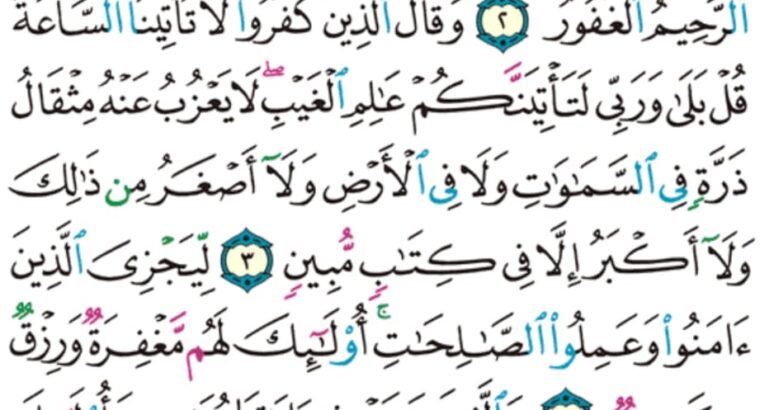 ٱلرَّحِيمُ ٱلْغَفُورُ ٢ وَقَالَ ٱلَّذِينَ كَفَرُوا۟ لَا تَأْتِينَا ٱلسَّاعَةُ
قُلْ بَلَىٰ وَرَبِّى لَتَأْتِيَنَّكُمْ عَـٰلِمِ ٱلْغَيْبِۖ لَا يَعْزُبُ عَنْهُ مِثْقَالُ
ذَرَّةٍ فِى ٱلسَّمَـٰوَٰتِ وَلَا فِى ٱلْأَرْضِ وَلَآ أَصْغَرُ مِن ذَٰلِكَ
وَلَآ أَكْبَرُ إِلَّا فِى كِتَـٰبٍ مُّبِينٍ ٣ لِّيَجْزِىَ ٱلَّذِينَ
ءَامَنُوا۟ وَعَمِلُوا۟ ٱلصَّـٰلِحَـٰتِۚ أُو۟لَـٰٓئِكَ لَهُم مَّغْفِرَةٌ وَرِزْقٌ